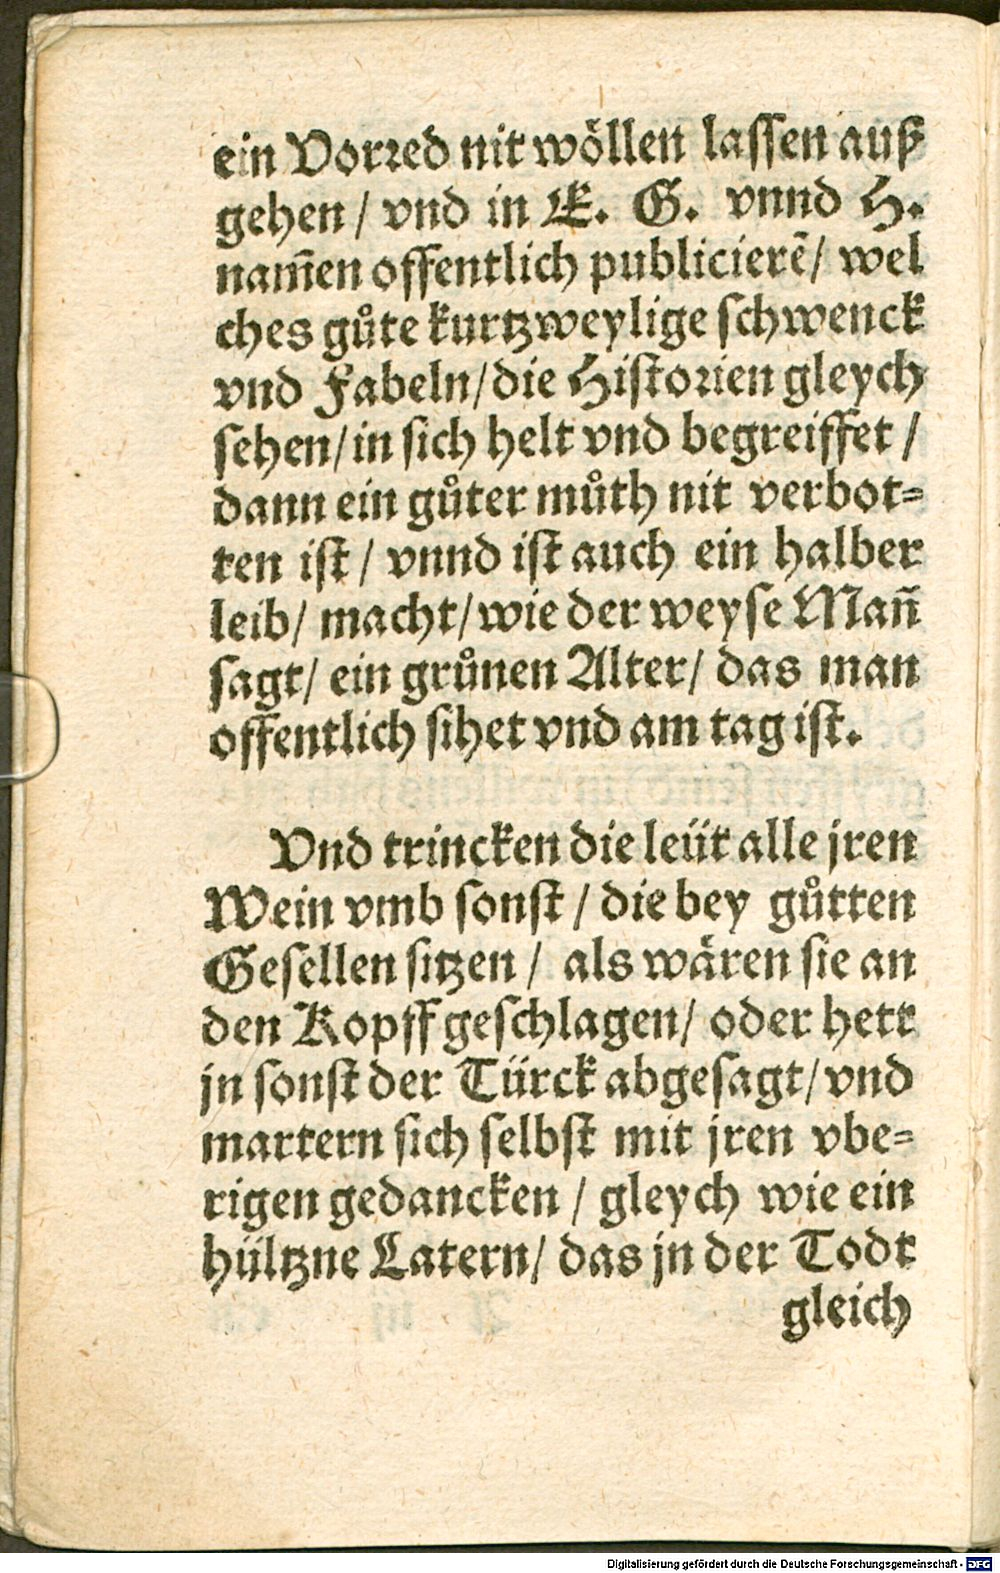 ein Vorred nit wöllen lassen auß
gehen / vnd in E. G. vnnd H.
nam̃en offentlich publicierẽ / wel
ches gůte kurtzweylige schwenck
vnd Fabeln / die Historien gleych
sehen / in sich helt vnd begreiffet /
dann ein gůter můth nit verbot=
ten ist / vnnd ist auch ein halber
leib / macht / wie der weyse Mañ
sagt / ein grůnen Alter / das man
offentlich sihet vnd am tag ist.
Vnd trincken die leüt alle jren
Wein vmb sonst / die bey gůtten
Gesellen sitzen / als wären sie an
den Kopff geschlagen / oder hett
jn sonst der Türck abgesagt / vnd
martern sich selbst mit jren vbe=
rigen gedancken / gleych wie ein
hültzne Latern / das jn der Todt
gleich
Digitalisierung gefördert durch die Deutsche Forschungsgemeinschaft - DFG